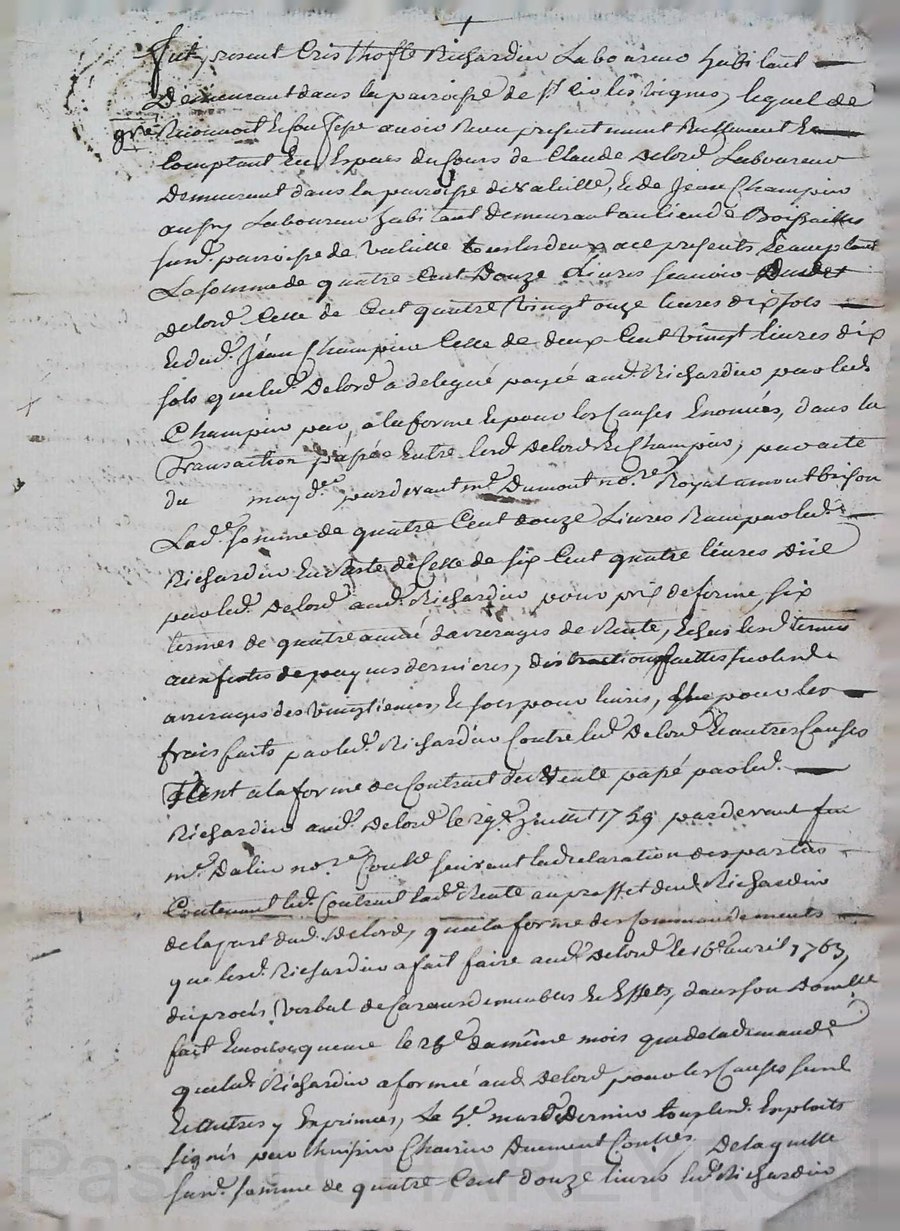 Fut present Cristhofle Richardin Laboureur habitant
Demeurant dans la parroisse de St Cir les Vignes, lequel de
gré Reconnoit Et Confesse avoir Receu presentement Reellement Et
Comptant En Especes du Cours de Claude Delord Laboureur
Demeurant dans la parroisse de Valeille, Et de Jean Champin
aussy Laboureur habitant demeurant au lieu de
susd. parroisse de Valeille tous les deux ace presents, Acceptant
La somme de quatre Cent Douze Livres scavoir Dudet
Delord Celle de Cent quatre Vingt onze livres dix sols
Et dud. Jean Champin Celle de deux Cent Vingt livres dix
sols que led. Delord a delegué payée aud. Richardin par led.
Champin par, a la forme Et pour les Causes Enoncées, dans la
Transaction passée Entre lesd Delord Et Champin, par acte
du may d.er pardevant me Dumont nore Royal a montbrison
Lad.e somme de quatre Cent douze Livres Receu par led.
Richardin En Reste de Celle de six Cent quatre livres düe
par led. Delord aud. Richardin pour prix de ferme, six
termes de quatre année d'arrerages de Rente, Echus lesd. termes
aux festes de paques dernieres, distraction faittes sur lesd.
arrerages des Vingtiemes, Et sols pour livres, que pour les
frais faits par led. Richardin Contre led. Delord Et autres Causes
Le tout a la forme du Contrat de Vente passé par led.
Richardin aud. Delord le 29.e Juillet 1759 pardevant feu
me. Dalin nore. suivant la declaration des parties
Contenant led. Contrat lad.e Rente au proffet dud. Richardin
de la part dud. Delord, qu'a la forme des Commandements
que led. Richardin a fait faire aud. Delord le 16.e avril 1763,
du procès Verbal de Carence de meubles Et Effets, dans son Domlle
fait En consequence le 28.e du même mois que de la demande
que led. Richardin a formée aud. Delord pour les Causes susd
Et autres y Exprimées, Le 5.e mars Dernier tous lesd. Exploits
signés par Charin Duement Conllés, De laquelle
susd. somme de quatre Cent douze livres led. Richardin
Pas HAREYRON